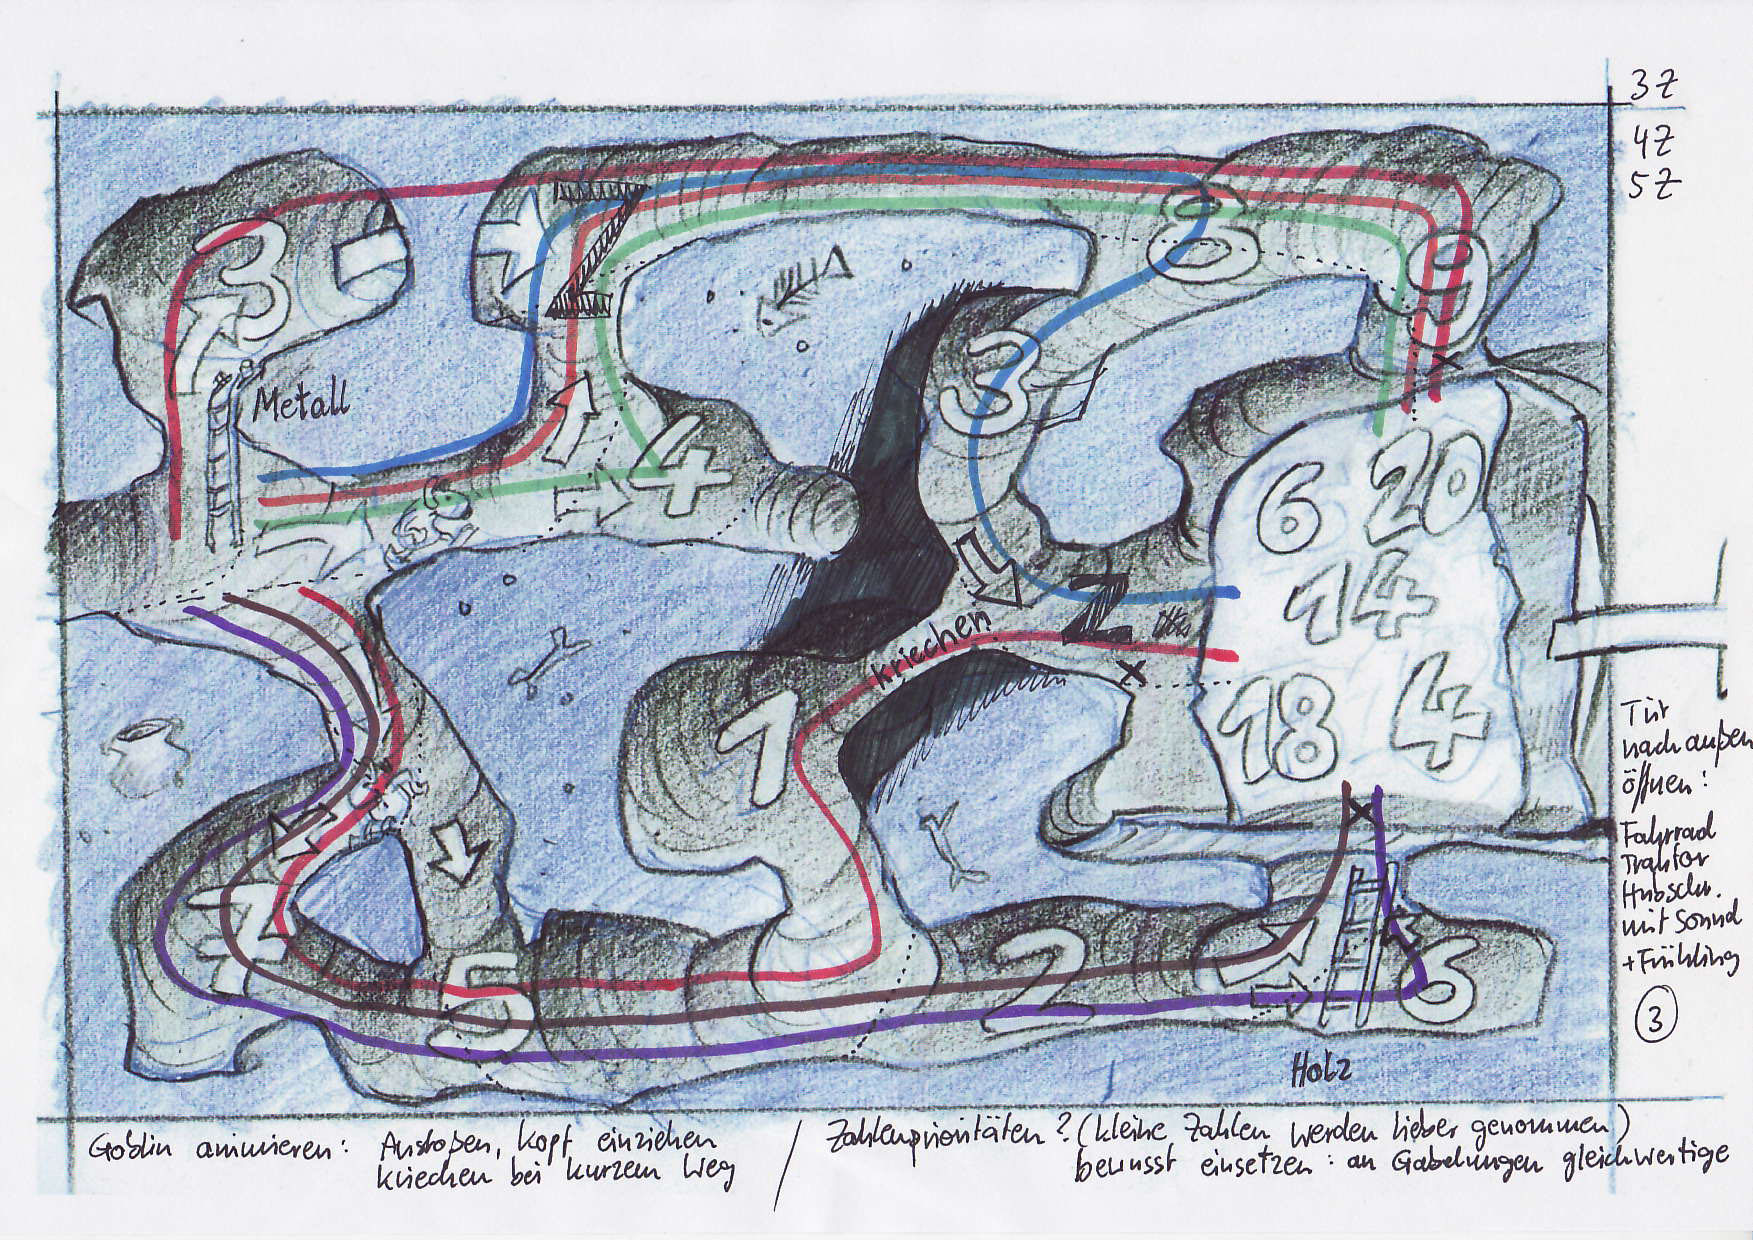 3Z
4Z
5Z
3
8
9
Metall
3
4
6 20
14
18 4
2
kriechen
1
7
5
2
6
Holz
Tür
nach außen
öffnen:
Fahrrad
Traktor
Hubschr.
mit Sound
+ Frühling
3
Goblin animieren: Anstoßen, Kopf einziehen
kriechen bei kurzem Weg
/
Zahlenprioritäten? (kleine Zahlen werden lieber genommen)
bewusst einsetzen: an Gabelungen gleichwertige